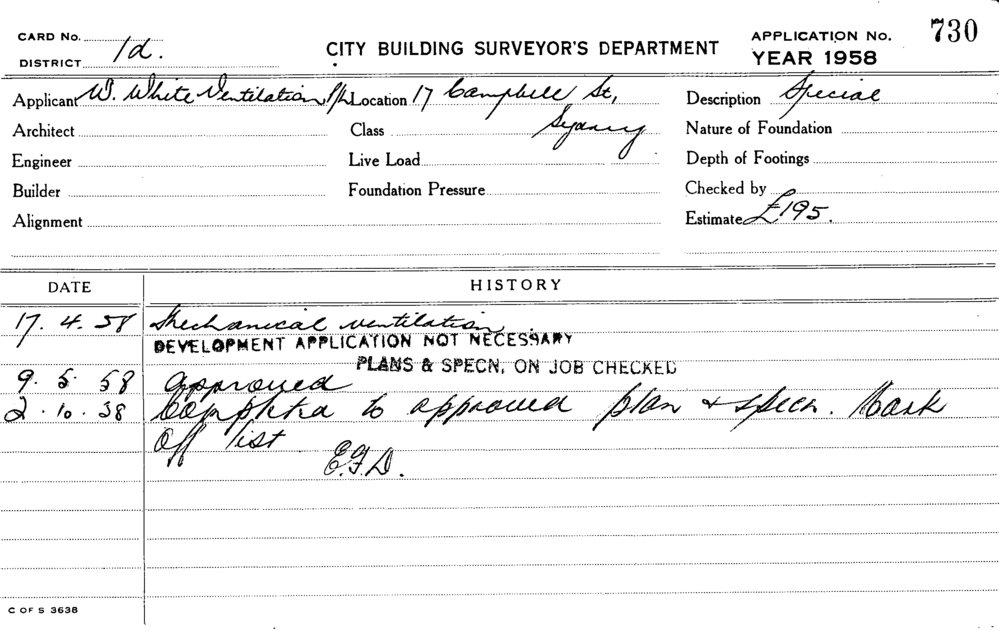 CARD No.
DISTRICT 1d.
CITY BUILDING SURVEYOR'S DEPARTMENT
APPLICATION No. 730
YEAR 1958
Applicant W. White Ventilation P/L Location 17 Campbell St, Description Special
Architect Class Sydney Nature of Foundation
Engineer Live Load Depth of Footings
Builder Foundation Pressure Checked by
Alignment Estimate £195.
DATE HISTORY
17. 4. 58 Mechanical ventilation.
DEVELOPMENT APPLICATION NOT NECESSARY
PLANS & SPECN, ON JOB CHECKED
9. 5. 58 approved
2. 10. 58 Completed to approved plan & specn. Mark
off list
E.F.D.
C OF S 3638